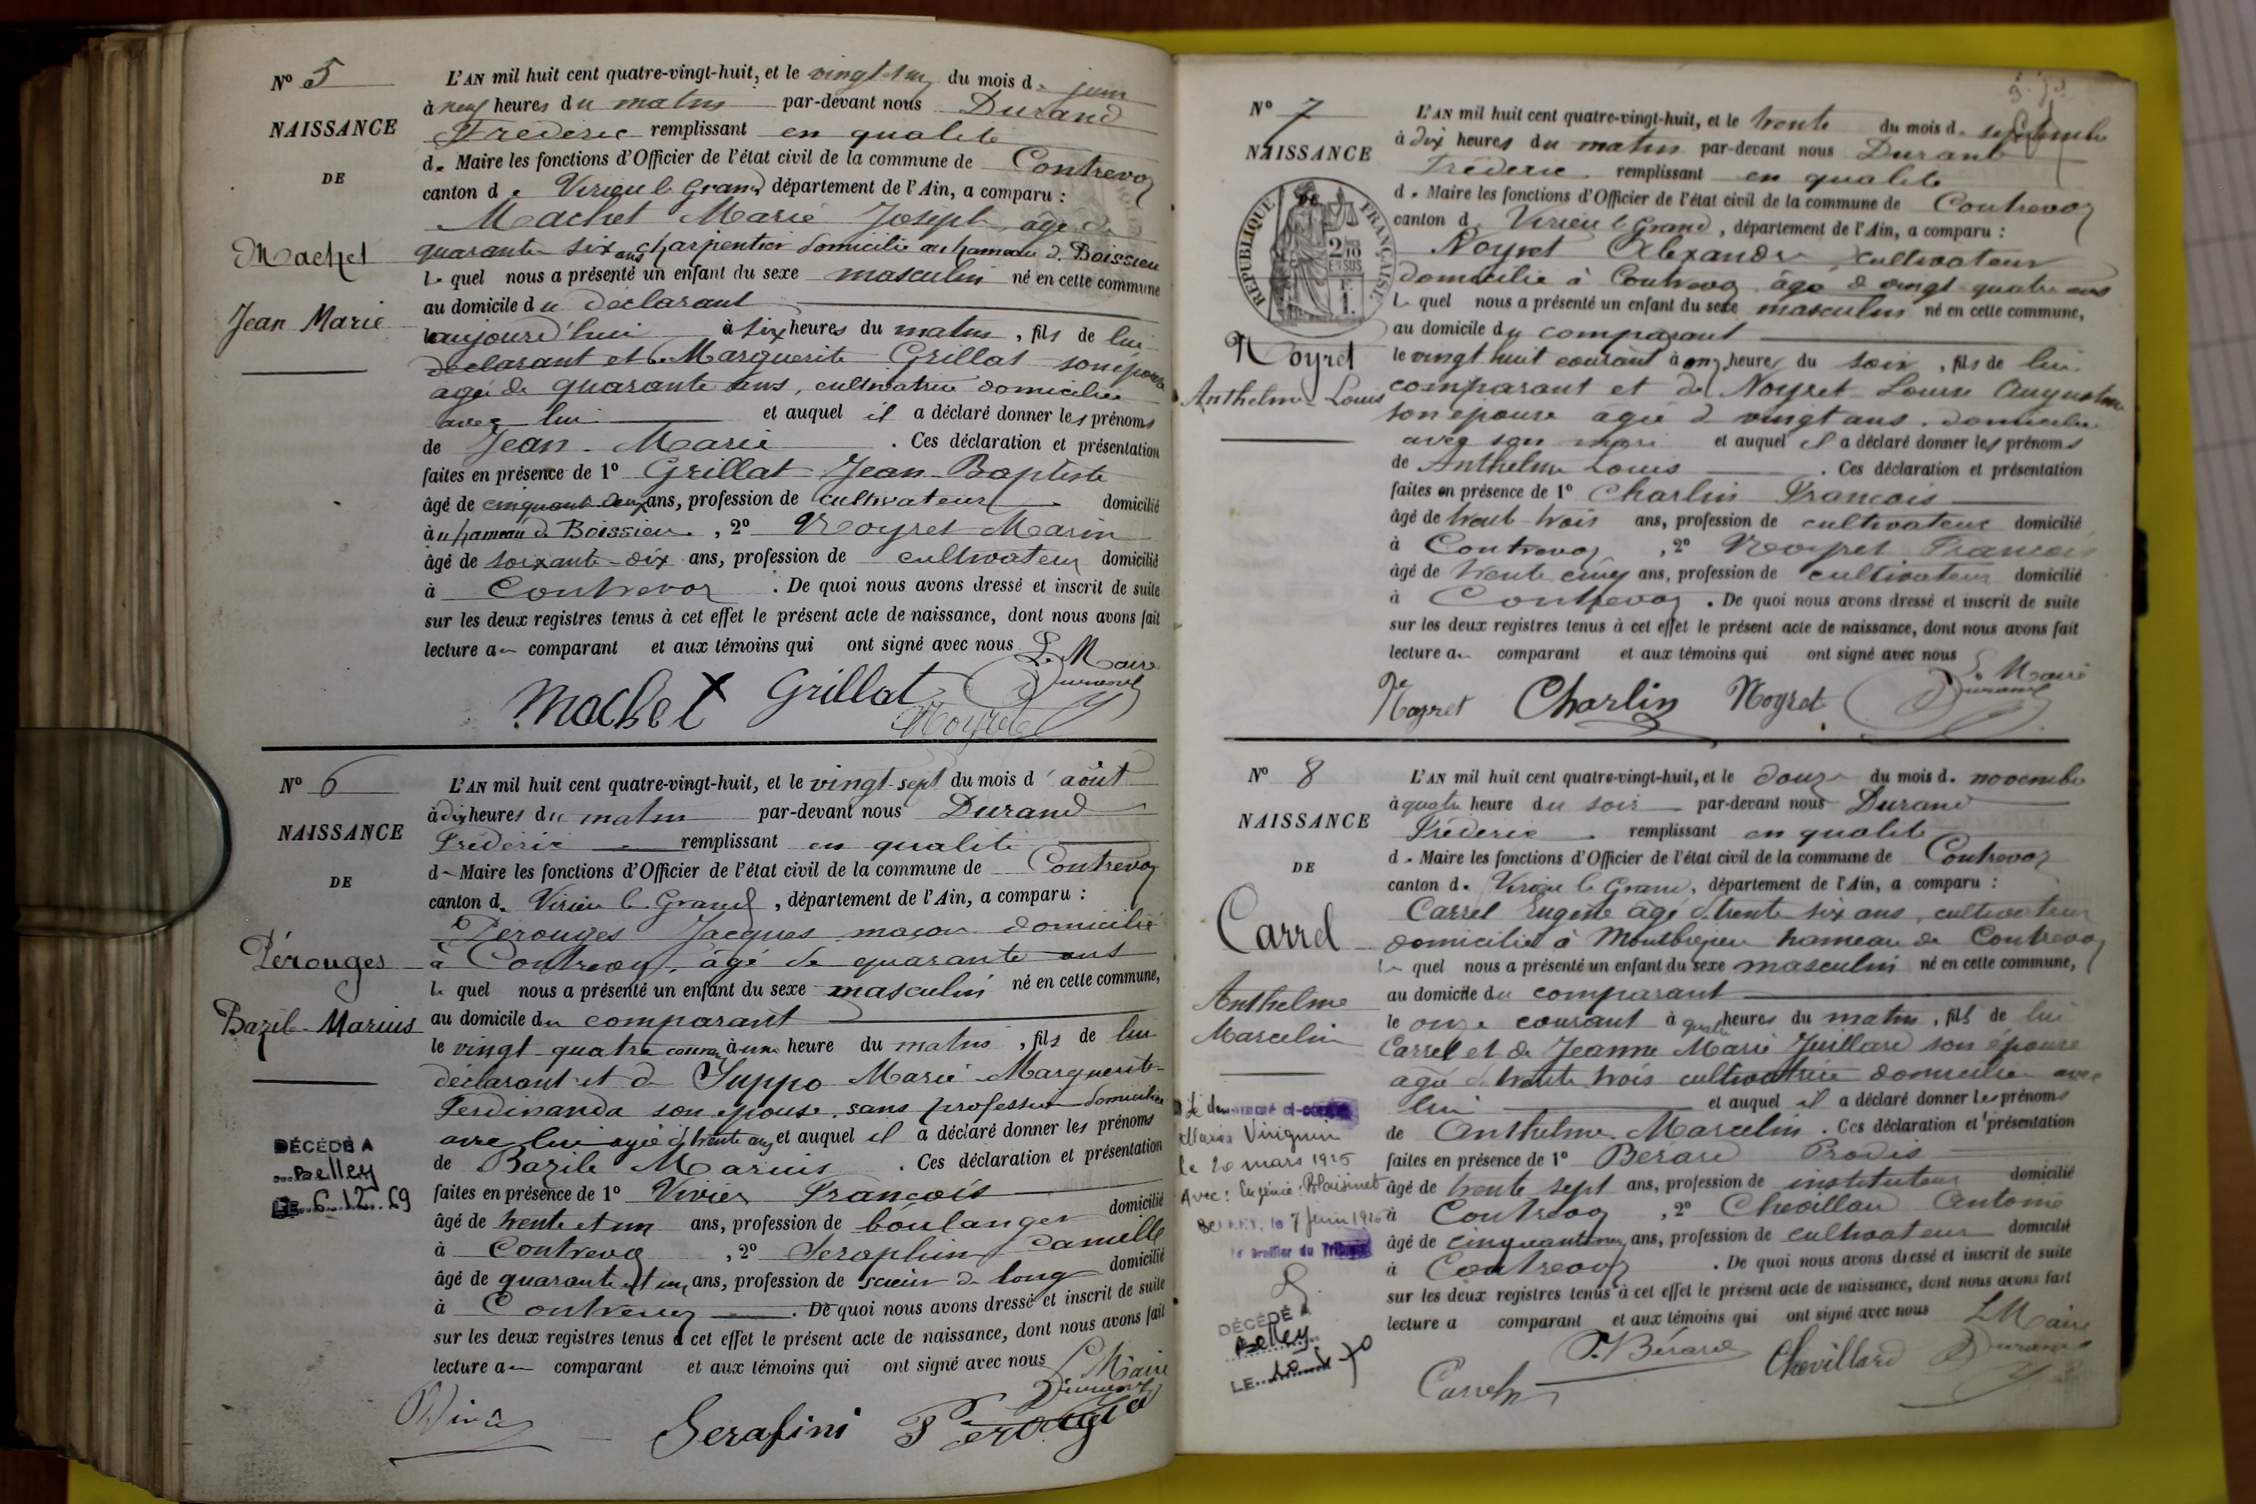 N° 5
NAISSANCE
DE
Machet
Jean Marie
L'AN mil huit cent quatre-vingt-huit, et le du mois de juin
à neuf heures du matin par-devant nous Durand
Frédéric remplissant en qualité
de Maire les fonctions d'Officier de l'état civil de la commune de Contrevoz
canton de Virieu le Grand département de l'Ain, a comparu :
Machet Marie Joseph âgé de
quarante six ans charpentier domicilié au hameau de Boissieu
Le quel nous a présenté un enfant du sexe masculin né en cette commune
au domicile du déclarant
aujourd'hui à six heures du matin, fils de lui
déclarant et de Marguerite Grillat son épouse
agée de quarante ans, cultivatrice domiciliée
avec lui et auquel il a déclaré donner les prénoms
de Jean-Marie. Ces déclaration et présentation
faites en présence de 1° Grillat Jean-Baptiste
âgé de cinquante deux ans, profession de cultivateur domicilié
à hameau de Boissieu, 2° Noyret Marin
âgé de soixante-dix ans, profession de cultivateur domicilié
à Contrevoz. De quoi nous avons dressé et inscrit de suite
sur les deux registres tenus à cet effet le présent acte de naissance, dont nous avons fait
lecture au comparant et aux témoins qui ont signé avec nous
Le Maire
Machet Grillat Durand
Noyret
N° 6
NAISSANCE
DE
Pérouges
Bazile Marius
DÉCÉDÉ A
Belley
LE 6.12.69
L'AN mil huit cent quatre-vingt-huit, et le vingt-sept du mois d'août
à dix heures du matin par-devant nous Durand
Frédéric remplissant en qualité
de Maire les fonctions d'Officier de l'état civil de la commune de Contrevoz
canton de Virieu le Grand, département de l'Ain, a comparu :
Pérouges Jacques maçon domicilié
à Contrevoz, âgé de quarante ans
le quel nous a présenté un enfant du sexe masculin né en cette commune,
au domicile du comparant
le vingt quatre courant à une heure du matin, fils de lui
déclarant et de Suppo Marie Marguerite
Ferdinanda son épouse sans profession domiciliée
avec lui agée de trente ans et auquel il a déclaré donner les prénoms
de Bazile Marius. Ces déclaration et présentation
faites en présence de 1° Vivier François
âgé de trente et un ans, profession de boulanger domicilié
à Contrevoz, 2° Seraphini Camille
âgé de quarante et un ans, profession de scieur de long domicilié
à Contrevoz. De quoi nous avons dressé et inscrit de suite
sur les deux registres tenus à cet effet le présent acte de naissance, dont nous avons fait
lecture au comparant et aux témoins qui ont signé avec nous
Le Maire
Durand
Serafini
N° 7
NAISSANCE
DE
RÉPUBLIQUE FRANÇAISE
2/10 EN SUS
Noyret
Anthelme Louis
L'AN mil huit cent quatre-vingt-huit, et le trente du mois de septembre
à dix heures du matin par-devant nous Durand
Frédéric remplissant en qualité
de Maire les fonctions d'Officier de l'état civil de la commune de Contrevoz
canton de Virieu le Grand, département de l'Ain, a comparu :
Noyret Alexandre cultivateur
domicilié à Contrevoz âgé de vingt quatre ans
Le quel nous a présenté un enfant du sexe masculin né en cette commune,
au domicile du comparant
le vingt huit courant à onze heures du soir, fils de lui
comparant et de Noyret Louise Augustine
son épouse agée de vingt ans, domiciliée
avec son mari et auquel il a déclaré donner les prénoms
de Anthelme Louis. Ces déclaration et présentation
faites en présence de 1° Charlin François
âgé de trente-trois ans, profession de cultivateur domicilié
à Contrevoz, 2° Noyret François
âgé de trente cinq ans, profession de cultivateur domicilié
à Contrevoz. De quoi nous avons dressé et inscrit de suite
sur les deux registres tenus à cet effet le présent acte de naissance, dont nous avons fait
lecture au comparant et aux témoins qui ont signé avec nous
Le Maire
Noyret Charlin Noyret Durand
N° 8
NAISSANCE
DE
Carrel
Anthelme
Marcelin
Le 20 mars 1915
Avec : Eugénie
DÉCÉDÉ A
Belley
LE
L'AN mil huit cent quatre-vingt-huit, et le douze du mois de novembre
à quatre heure du soir par-devant nous Durand
Frédéric remplissant en qualité
de Maire les fonctions d'Officier de l'état civil de la commune de Contrevoz
canton de Virieu le Grand, département de l'Ain, a comparu :
Carrel Eugène âgé de trente six ans, cultivateur
domicilié à hameau de Contrevoz
Le quel nous a présenté un enfant du sexe masculin né en cette commune,
au domicile du comparant
le onze courant à quatre heures du matin, fils de lui
Carrel et de Jeanne Marie Juillard son épouse
agée de trente trois cultivatrice domiciliée avec
lui et auquel il a déclaré donner les prénoms
de Anthelme Marcelin. Ces déclaration et présentation
faites en présence de 1° Bérard
âgé de trente sept ans, profession de instituteur domicilié
à Contrevoz, 2° Chevillard Antoine
âgé de ans, profession de cultivateur domicilié
à Contrevoz. De quoi nous avons dressé et inscrit de suite
sur les deux registres tenus à cet effet le présent acte de naissance, dont nous avons fait
lecture a comparant et aux témoins qui ont signé avec nous
Le Maire
Carrel P. Bérard Chevillard Durand